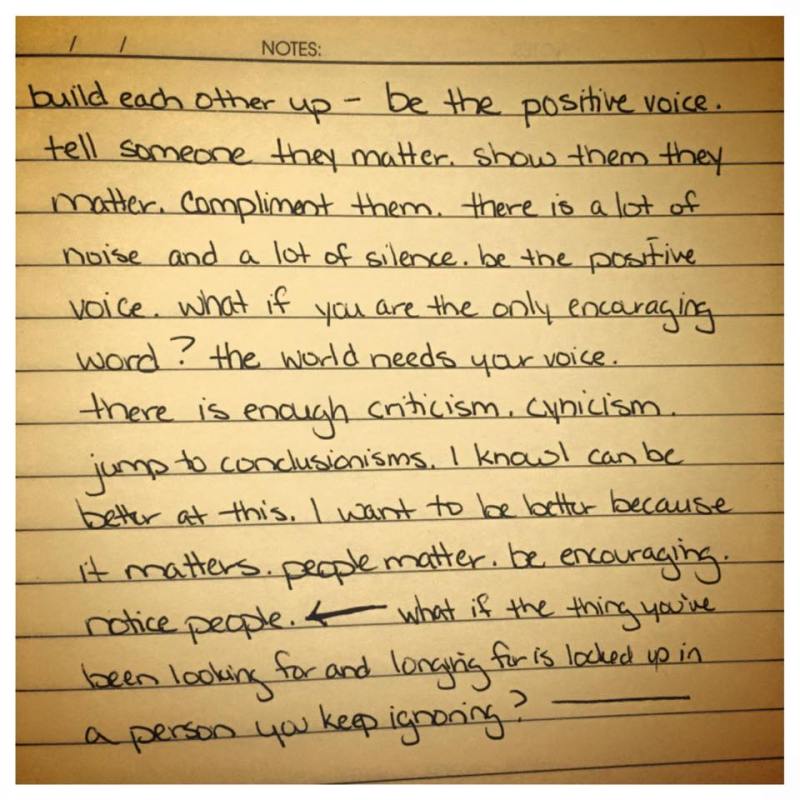 / / NOTES:
build each other up - be the positive voice.
tell someone they matter. show them they
matter. compliment them. there is a lot of
noise and a lot of silence. be the positive
voice. what if you are the only encouraging
word? the world needs your voice.
there is enough criticism. cynicism.
jump to conclusionisms. I know I can be
better at this. I want to be better because
it matters. people matter. be encouraging.
notice people. ← what if the thing you've
been looking for and longing for is locked up in
a person you keep ignoring? —